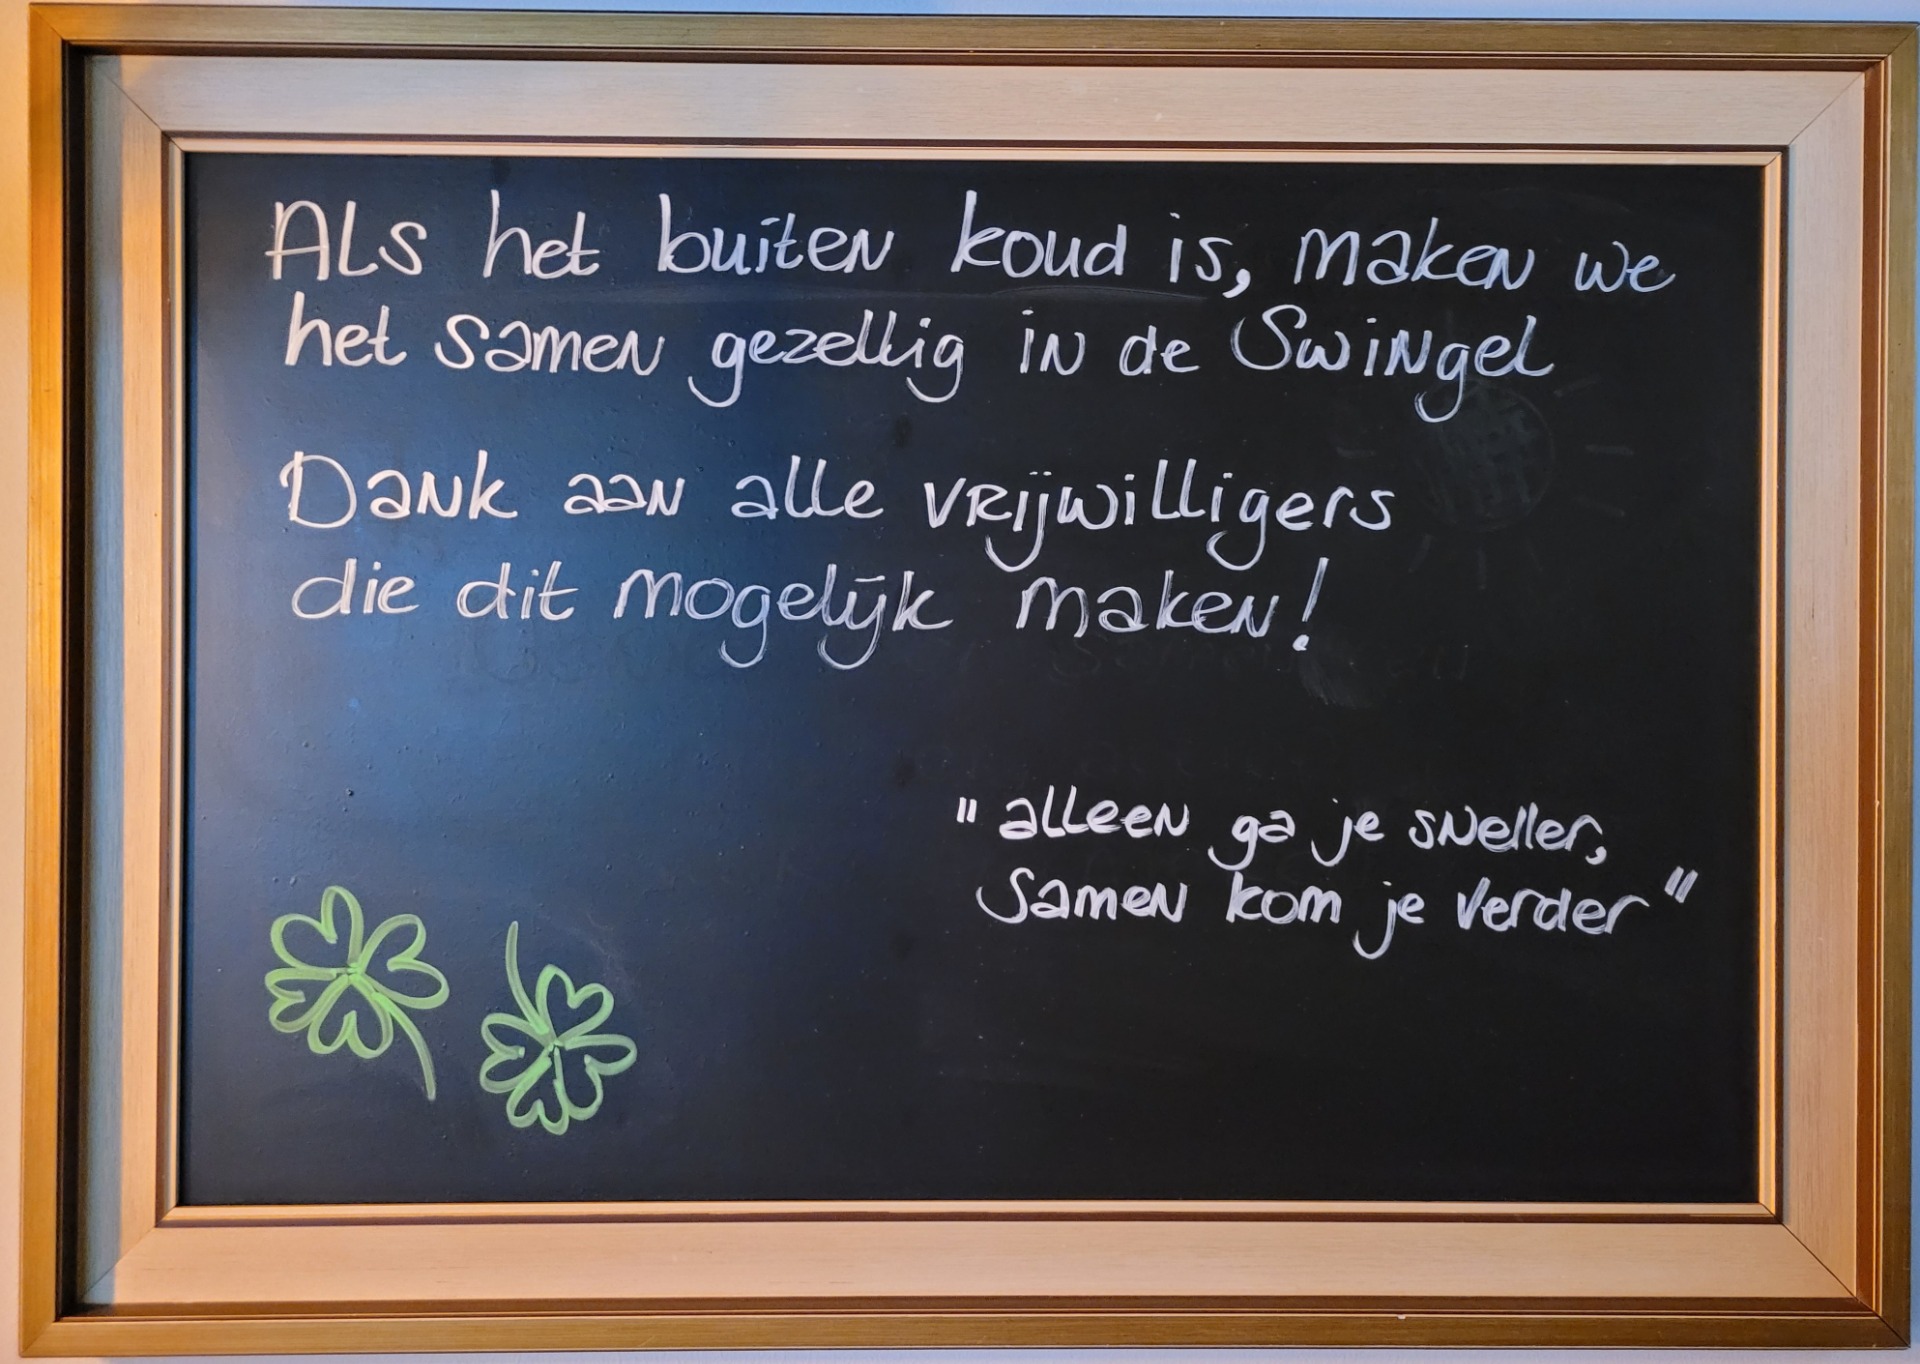 Als het buiten koud is, maken we
het samen gezellig in de Swingel
Dank aan alle vrijwilligers
die dit mogelijk maken!
"alleen ga je sneller,
Samen kom je verder"